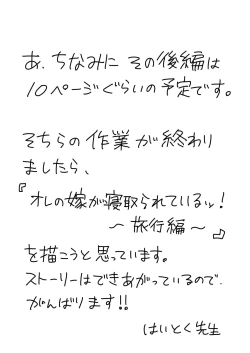 あ、ちなみに その後編は
10ページぐらいの予定です。
そちらの作業が終わり
ましたら、
『オレの嫁が寝取られているッ!
～旅行編～』
を描こうと思っています。
ストーリーはできあがっているので、
がんばります!!
はいとく先生